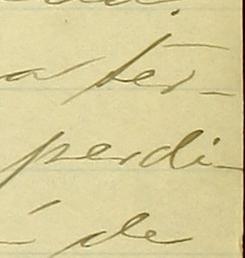 a ter-
perdi-
de